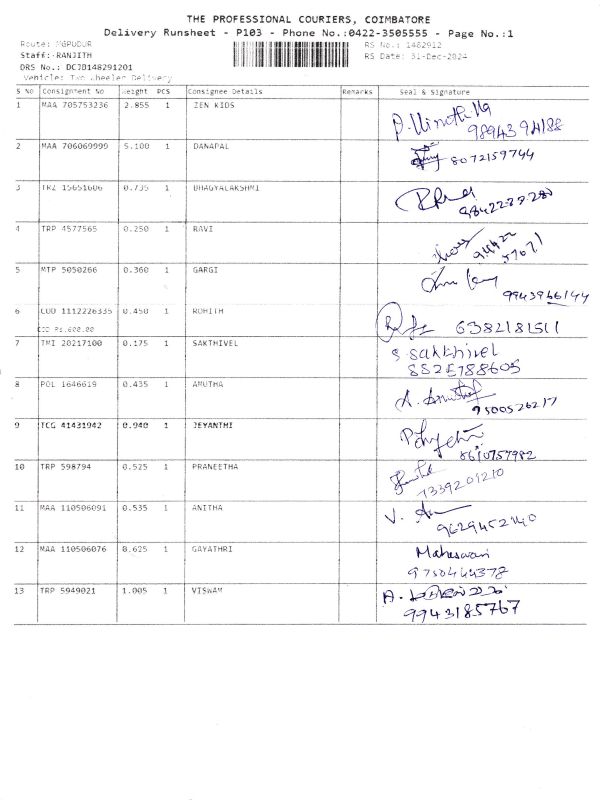 THE PROFESSIONAL COURIERS, COIMBATORE
Delivery Runsheet - P103 - Phone No.:0422-3505555 - Page No.:1
Route: MGPUDUR
RS No.: 1482912
Staff: RANJITH
RS Date: 31-Dec-2024
DRS No.: DCJD148291201
Vehicle: Two Wheeler Delivery
S No Consignment No Weight PCS Consignee Details Remarks Seal & Signature
1 MAA 705753236 2.855 1 ZEN KIDS
98943 94188
2 MAA 706069999 5.100 1 DANAPAL
8072159744
3 TRZ 15651606 0.735 1 BHAGYALAKSHMI
4 TRP 4577565 0.250 1 RAVI
5 MTP 5050266 0.360 1 GARGI
9943966144
6 COD 1112226335 0.450 1 ROHITH
COD Rs.600.00
6382181511
7 TMI 20217100 0.175 1 SAKTHIVEL
S Sakthivel
8 POL 1646619 0.435 1 AMUTHA
9500526217
9 TCG 41431942 0.940 1 JEYANTHI
8610757982
10 TRP 598794 0.525 1 PRANEETHA
7339201210
11 MAA 110506091 0.535 1 ANITHA
9629452140
12 MAA 110506076 0.625 1 GAYATHRI
Maheswari
9750444378
13 TRP 5949021 1.005 1 VISWAM
9943185767